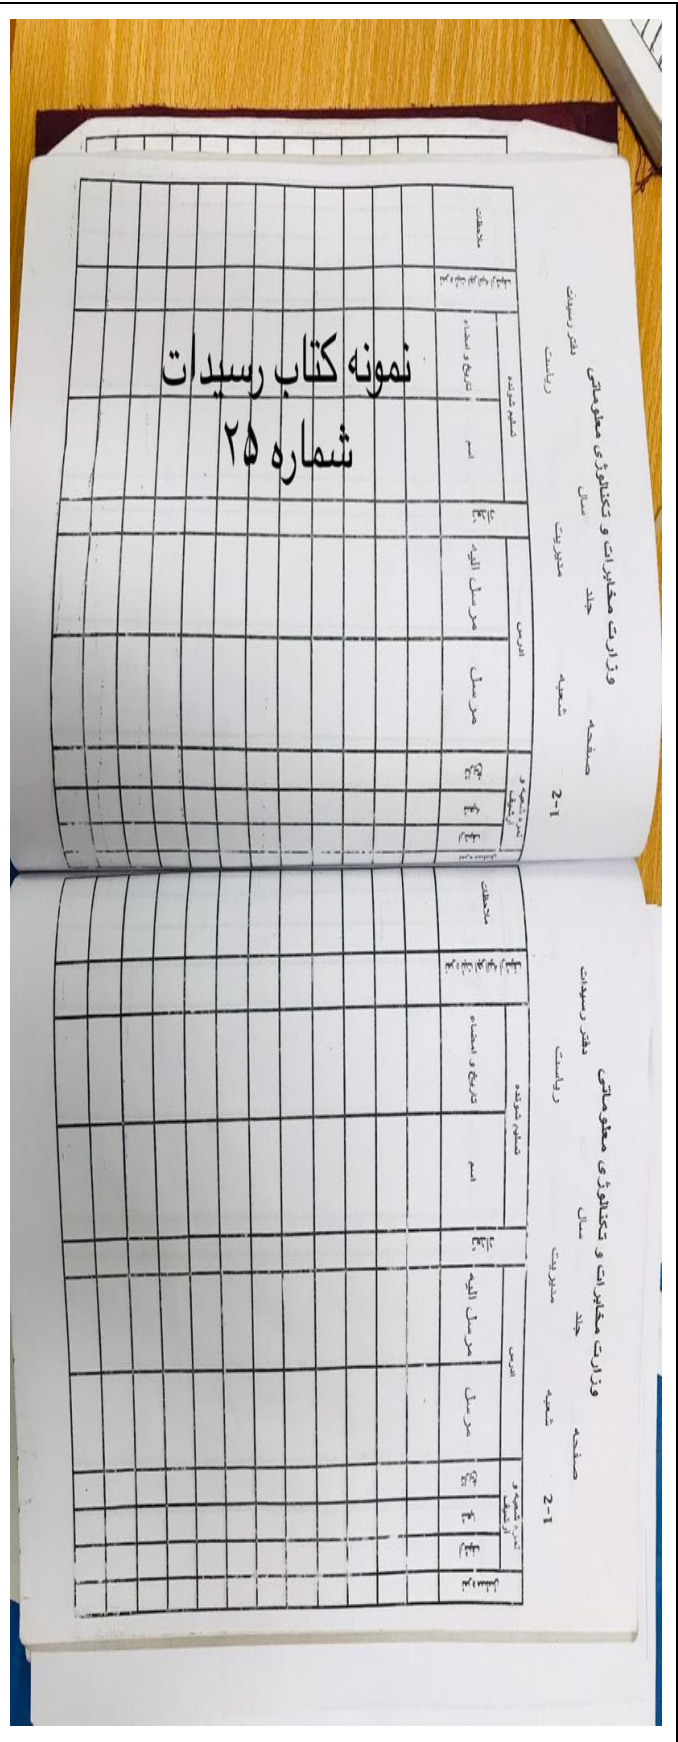 نمونه کتاب رسیدات
شماره ۲۵
وزارت مخابرات و تکنالوژی معلوماتی
دفتر رسیدات سال جلد صفحه
ریاست مدیریت شعبه 2-1
نمره شعبه و آرشیف ادرس تسلیم شونده ملاحظات
مرسل مرسل الیه اسم تاریخ و امضاء
وزارت مخابرات و تکنالوژی معلوماتی
دفتر رسیدات سال جلد صفحه
ریاست مدیریت شعبه 2-1
نمره شعبه و آرشیف ادرس تسلیم شونده ملاحظات
مرسل مرسل الیه اسم تاریخ و امضاء